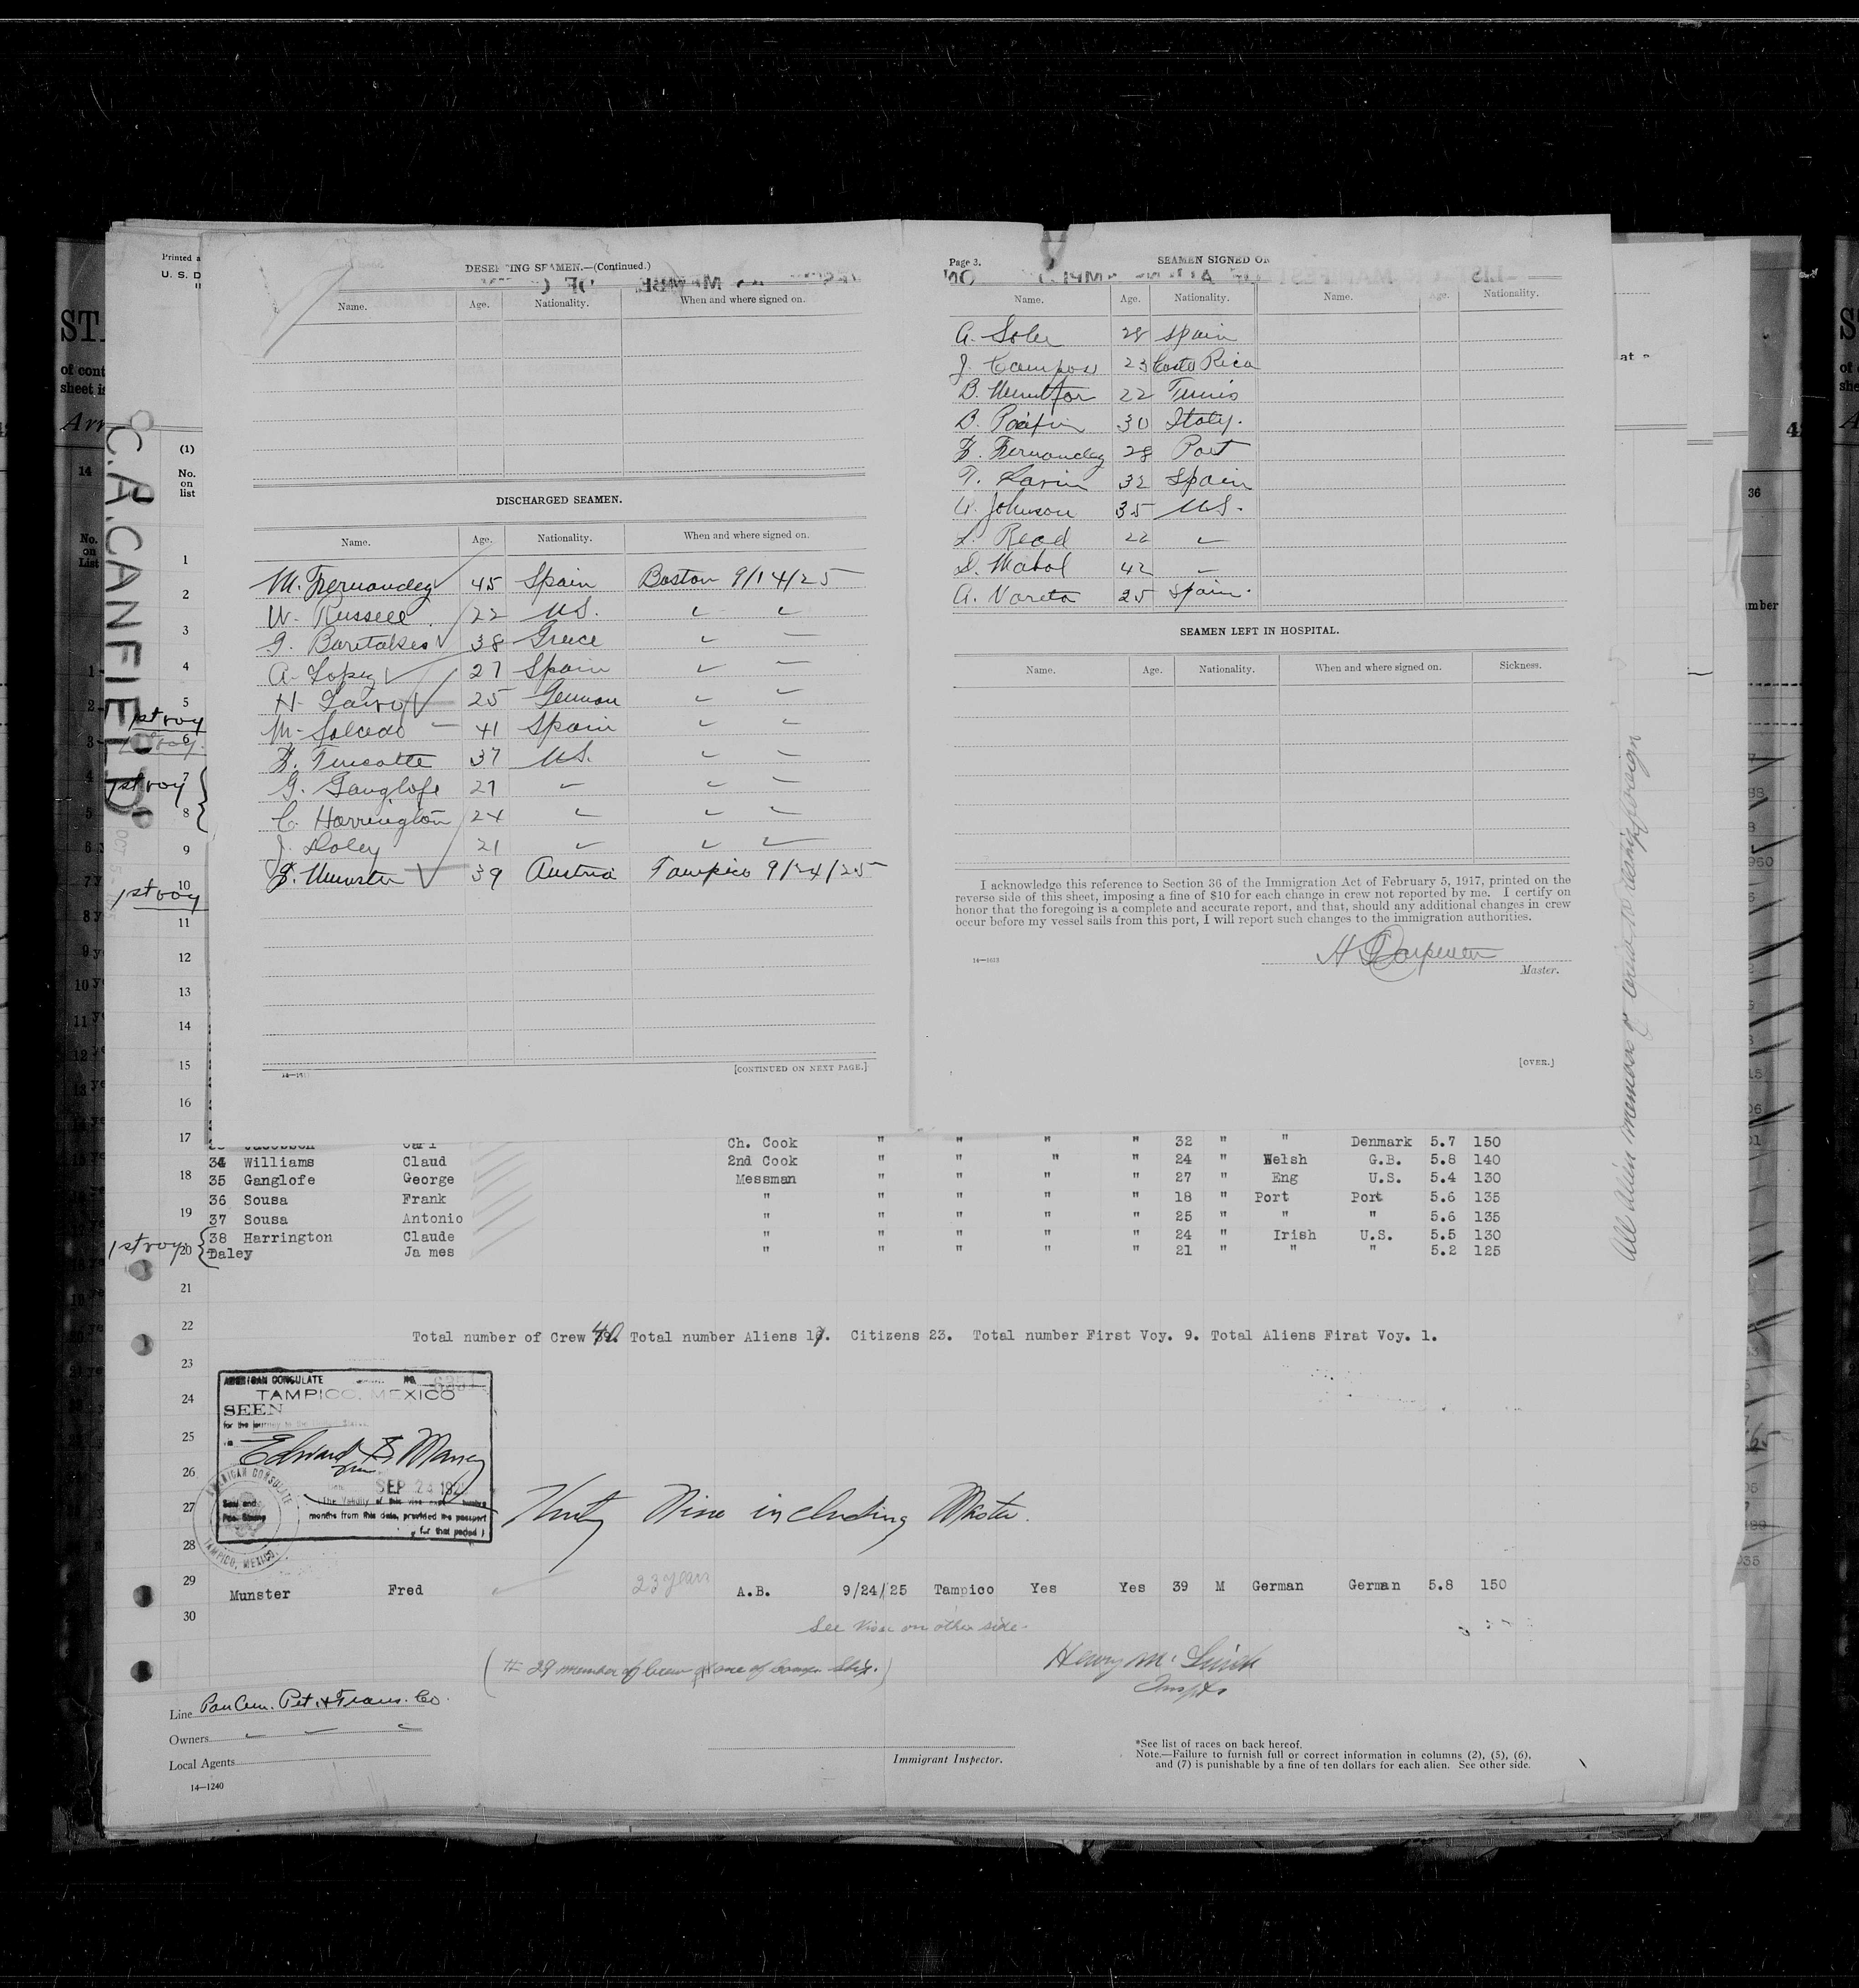 DESERTING SEAMEN.—(Continued.)
Name. Age. Nationality. When and where signed on.
DISCHARGED SEAMEN.
Name. Age. Nationality. When and where signed on.
M. Fernandez 45 Spain Boston 9/14/25
W. Russell 22 U.S. " "
G. Baritakes 38 Greece " "
A. Lopez 27 Spain " "
H. 25 German " "
M. Salcedo 41 Spain " "
F. Turcotte 37 U.S. " "
G. Ganglofe 27 " " "
C. Harrington 24 " " "
J. Daley 21 " " "
F. Munster 39 Austria Tampico 9/24/25
[CONTINUED ON NEXT PAGE.]
Page 3. SEAMEN SIGNED ON
Name. Age. Nationality. Name. Age. Nationality.
A. Soler 28 Spain
J. Campos 23 Costa Rica
B. 22 Tunis
B. 30 Italy.
F. Fernandez 28 Port
T. 32 Spain
A. Johnson 35 U.S.
L. Read 22 "
D. 42 "
A. Vareta 25 Spain.
SEAMEN LEFT IN HOSPITAL.
Name. Age. Nationality. When and where signed on. Sickness.
I acknowledge this reference to Section 36 of the Immigration Act of February 5, 1917, printed on the
reverse side of this sheet, imposing a fine of $10 for each change in crew not reported by me. I certify on
honor that the foregoing is a complete and accurate report, and that, should any additional changes in crew
occur before my vessel sails from this port, I will report such changes to the immigration authorities.
H Carpenter
14—1613
Master.
[OVER.]
Printed a
U. S. D
(1)
No.
on
list
C.A.CANFIELD
1
2
3
4
5
1st voy
6
1st voy 7
8
9
1st voy 10
11
12
13
14
15
16
17 Jacobson Carl Ch. Cook " " " " 32 " " Denmark 5.7 150
34 Williams Claud 2nd Cook " " " " 24 " Welsh G.B. 5.8 140
18 35 Ganglofe George Messman " " " " 27 " Eng U.S. 5.4 130
36 Sousa Frank " " " " " 18 " Port Port 5.6 135
19 37 Sousa Antonio " " " " " 25 " " " 5.6 135
1st voy 38 Harrington Claude " " " " " 24 " Irish U.S. 5.5 130
20 Daley Ja mes " " " " " 21 " " " 5.2 125
21
22 Total number of Crew 40. Total number Aliens 17. Citizens 23. Total number First Voy. 9. Total Aliens Firat Voy. 1.
23
AMERICAN CONSULATE NO.
TAMPICO, MEXICO
24
SEEN
for the journey to the United States
25
Edward
26
SEP 24 192
27
months from this date, provided the passport
for that period )
AMERICAN CONSULATE
TAMPICO, MEXICO.
Thirty Nine including Master.
28
29 Munster Fred 23 years A.B. 9/24/25 Tampico Yes Yes 39 M German German 5.8 150
30
See visa on other side.
(# 29 member of crew of one of Comp. Ship.)
Henry M.
Insptr
All alien members of crew to reship foreign
Line Pan Am. Pet. & Trans. Co.
Owners " " "
Local Agents
14—1240
Immigrant Inspector.
*See list of races on back hereof.
Note.—Failure to furnish full or correct information in columns (2), (5), (6),
and (7) is punishable by a fine of ten dollars for each alien. See other side.